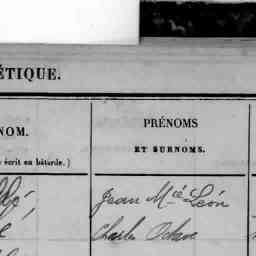 ÉTIQUE.
NOM.
PRÉNOMS
ET SURNOMS.
écrit en bâtarde.)
Jean Mcé Léon
Charles Octave